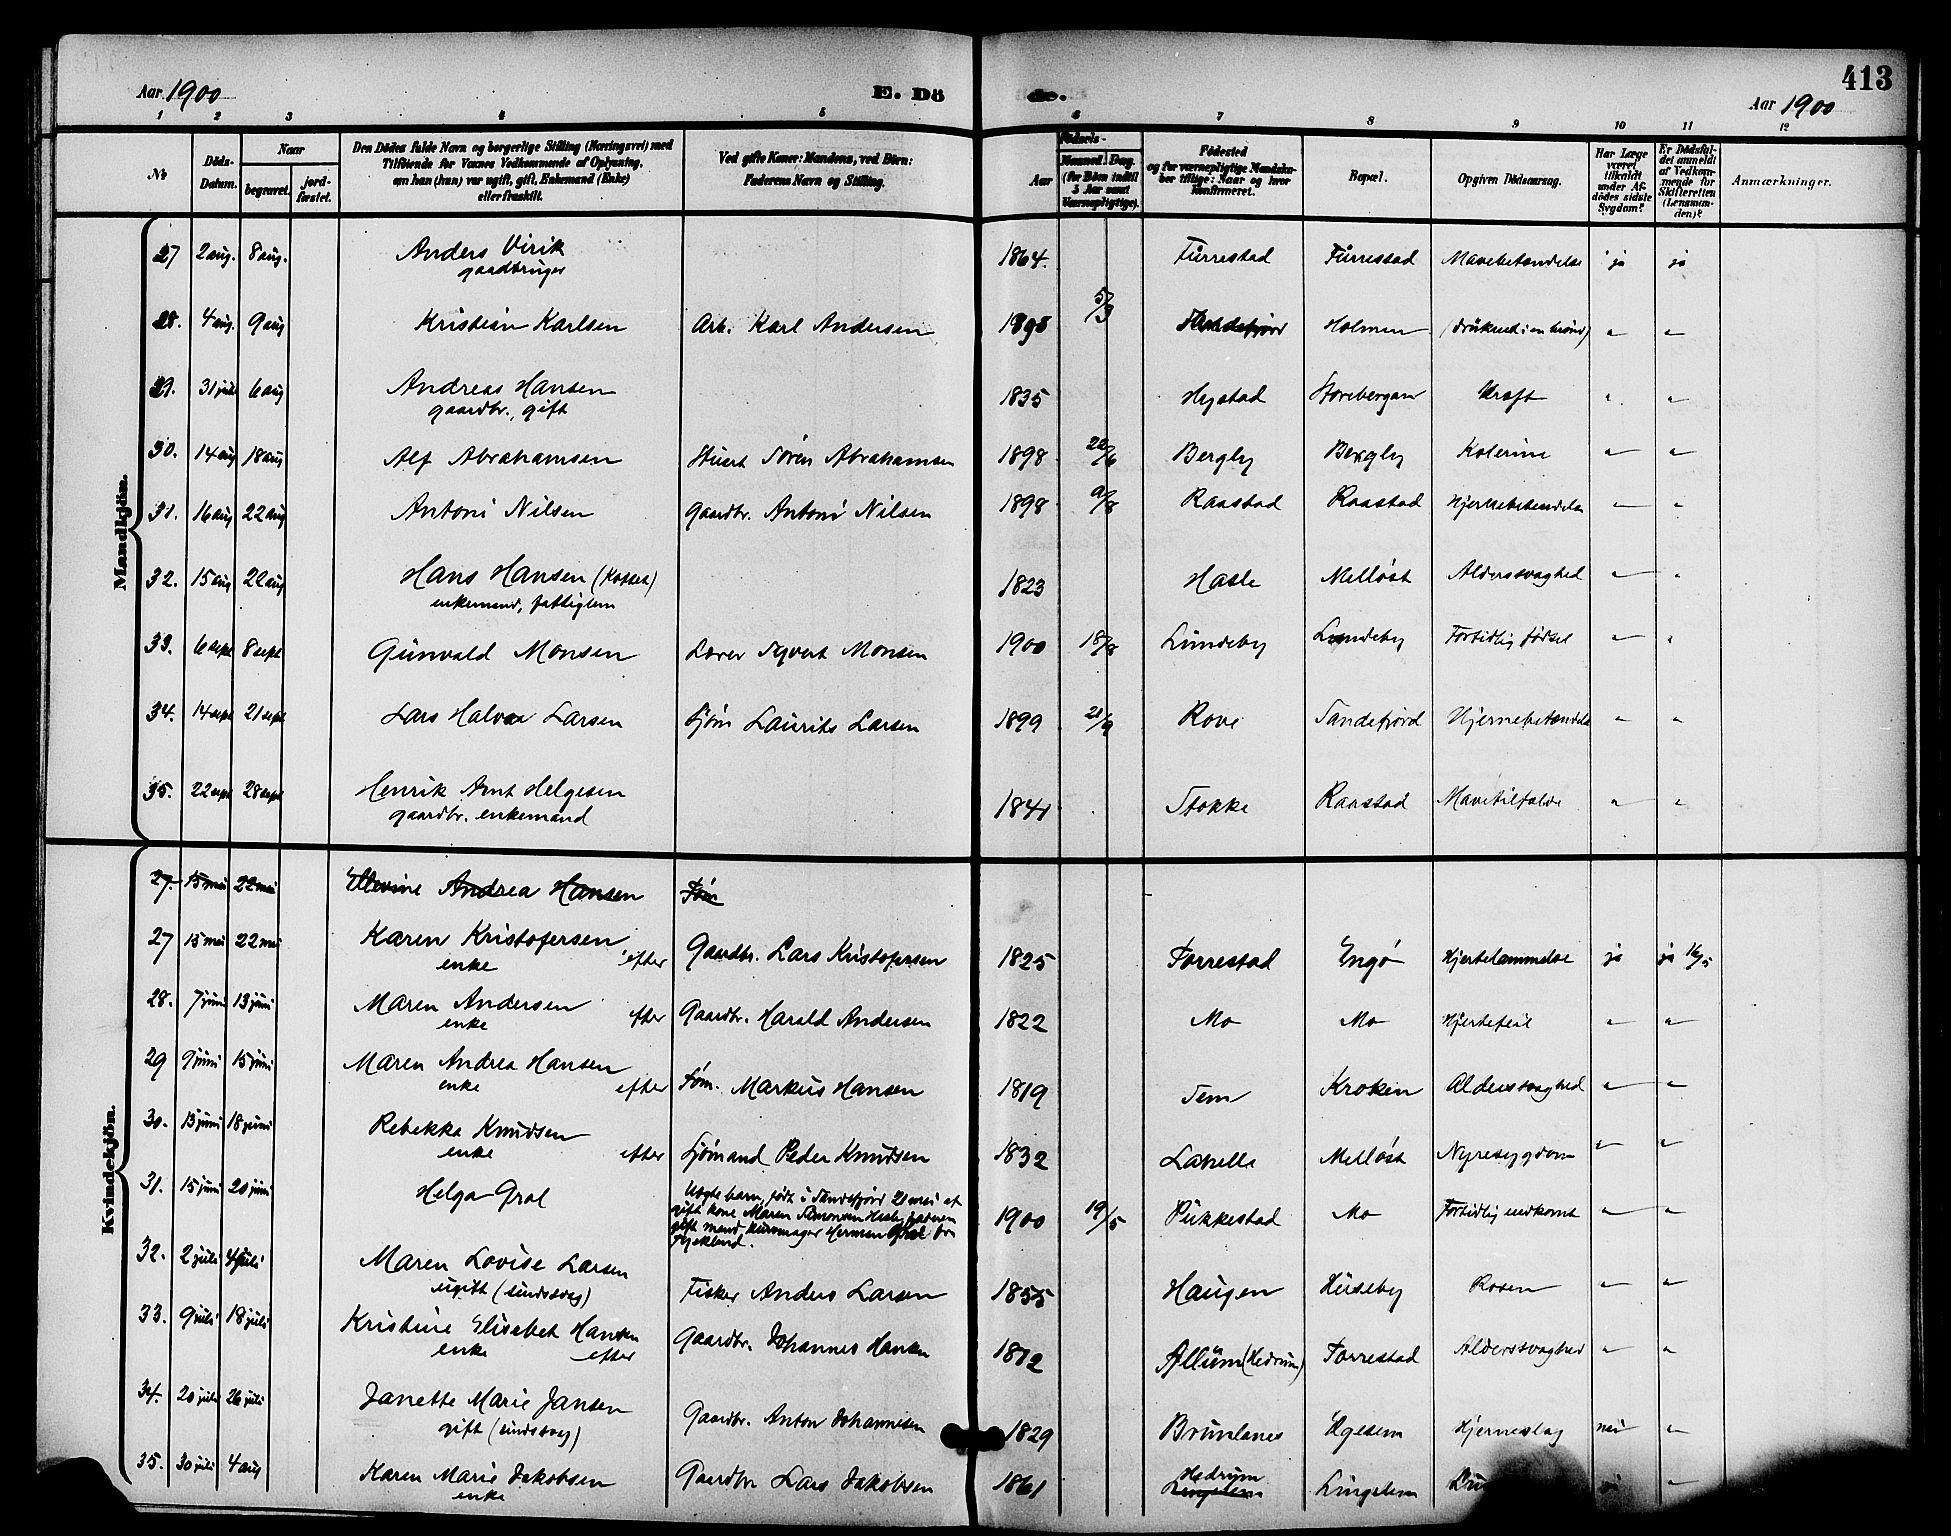 413
Aar 1900
E. Dö
de.
Aar 1900
1 2 3 4 5 6 7 8 9 10 11 12
No
Döds-
Datum.
Naar
begravet.
jord-
fæstet.
Den Dödes fulde Navn og borgerlige Stilling (Næringsvei) med
Tilföiende for Voxnes Vedkommende af Oplysning,
om han (hun) var ugift, gift, Enkemand (Enke)
eller fraskilt.
Ved gifte Koner: Mandens, ved Börn:
Faderens Navn og Stilling.
Födsels-
Aar
Maaned
Dag.
(for Börn indtil
5 Aar samt
Værnepligtige).
Födested
og for værnepligtige Mandska-
ber tillige: Naar og hvor
konfirmeret.
Bopæl.
Opgiven Dödsaarsag.
Har Læge
været
tilkaldt
under Af-
dödes sidste
Sygdom?
Er Dödsfal-
det anmeldt
af Vedkom-
mende for
Skifteretten
(Lensman-
den)?
Anmærkninger.
Mandkjön.
27 2 aug. 8 aug. Anders Virik 1864. Furrestad Furrestad Mavebetændelse ja ja
gaardbruger
28. 4 aug. 9 aug Kristian Karlsen Arb. Karl Andersen 1895 5/3 Sandefjord Holmen (druknet i en brönd) " "
29. 31 juli 6 aug Andreas Hansen 1835 Hystad Storebergan Kræft " "
gaardbr., gift
30. 14 aug 18 aug Alf Abrahamsen Stuert Sören Abrahamsen 1898 22/6 Bergby Bergby Kolerine " "
31. 16 aug 22 aug Antoni Nilsen Gaardbr. Antoni Nilsen 1898 9/8 Raastad Raastad Hjernebetændelse " "
32. 15 aug 22 aug Hans Hansen 1823 Hasle Melløst Alderssvaghed " "
enkemand, fattiglem
33. 6 sept 8 sept Gunvald Monsen Lærer Syvert Monsen 1900 18/8 Lundeby Lundeby Fortidlig födsel " "
34. 14 sept 21 sept Lars Halvor Larsen Sjöm Laurits Larsen 1899 21/9 Rove Sandefjord Hjernebetændelse " "
35. 22 sept 28 sept Henrik Arnt Helgesen 1841 Stokke Raastad Mavetilfælde " "
gaardbr. enkemand
Kvindekjön.
27. 15 mai 22 mai Ellevine Andrea Hansen Söm
27 15 mai 22 mai Karen Kristofersen efter Gaardbr. Lars Kristofersen 1825 Torrestad Engö Hjertelammelse ja ja 16/5
enke
28. 7 juni 13 juni Maren Andersen efter Gaardbr. Harald Andersen 1822 Mo Mo Hjertefeil " "
enke
29 9 juni 15 juni Maren Andrea Hansen efter Söm. Markus Hansen 1819 Sem Kroken Alderssvaghed " "
enke
30. 13 juni 18 juni Rebekka Knudsen efter Sjömand Peder Knudsen 1832 Melløst Nyresygdom " "
enke
31. 15 juni 20 juni Helga Gral Uægte barn, født i Sandefjord 21 mai af
gift kone Maren Simonsen faderen
gift mand Herman Gral
1900 19/5 Pukkestad Mo Fortidlig nedkomst " "
32. 2 juli 4 juli Maren Lovise Larsen Fisker Anders Larsen 1855 Haugen Huseby Rosen " "
ugift (sindssvag)
33. 9 juli 18 juli Kristine Elisabet Hansen Gaardbr. Johannes Hansen 1812 Allum (Hedrum) Torrestad Alderssvaghed " "
enke efter
34. 20 juli 26 juli Janette Marie Jansen Gaardbr. Anton Johannesen 1829 Brunlanes Hjerneslag nei "
gift (sindssvag)
35. 30 juli 4 aug Karen Marie Jakobsen Gaardbr Lars Jakobsen 1861 Hedrum Lingelem ja "
enke